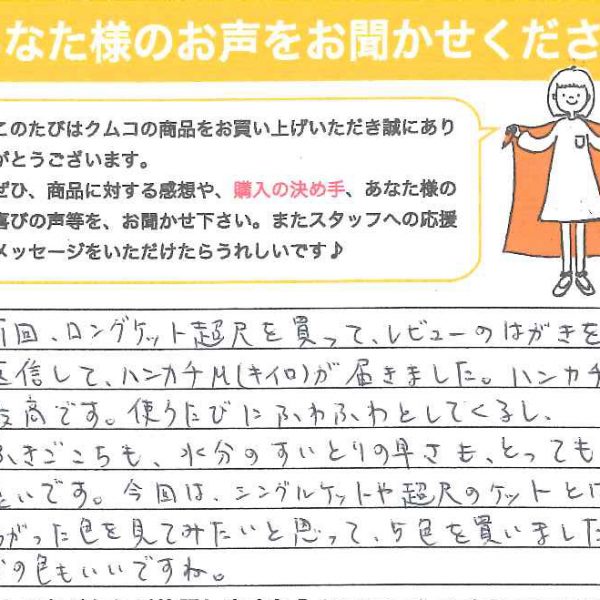 なた様のお声をお聞かせくださ
このたびはクムコの商品をお買い上げいただき誠にあり
がとうございます。
ぜひ、商品に対する感想や、購入の決め手、あなた様の
喜びの声等を、お聞かせ下さい。またスタッフへの応援
メッセージをいただけたらうれしいです♪
前回、ロングケット超尺を買って、レビューのはがきを
返信して、ハンカチM(キイロ)が届きました。ハンカチ
最高です。使うたびにふわふわとしてくるし、
ふきごこちも、水分のすいとりの早さも、とっても
いいです。今回は、シングルケットや超尺のケットとは
ちがった色を見てみたいと思って、5色を買いました
どの色もいいですね。